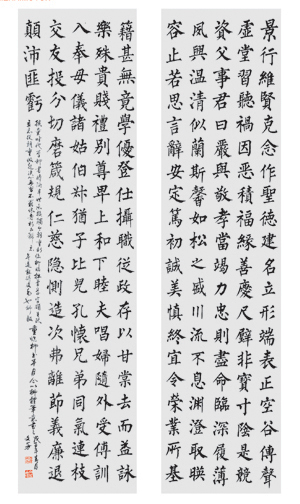 景行維賢克念作聖德建名立形端表正空谷傳聲
虛堂習聽禍因惡積福緣善慶尺璧非寶寸陰是競
資父事君曰嚴與敬孝當竭力忠則盡命臨深履薄
夙興溫清似蘭斯馨如松之盛川流不息淵澄取暎
容止若思言辭安定篤初誠美慎終宜令榮業所基
籍甚無竟學優登仕攝職從政存以甘棠去而益詠
樂殊貴賤禮別尊卑上和下睦夫唱婦隨外受傅訓
入奉母儀諸姑伯叔猶子比兒孔懷兄弟同氣連枝
交友投分切磨箴規仁慈隱惻造次弗離節義廉退
顛沛匪虧